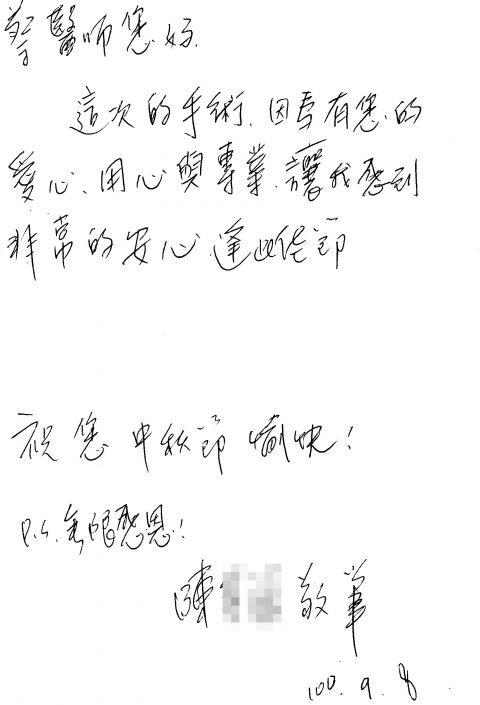 醫師您好.
這次的手術.因為有您的
愛心、用心與專業.讓我感到
非常的安心.逢此佳節
祝您中秋節愉快!
P.S.無限感恩!
陳 敬筆
100.9.8